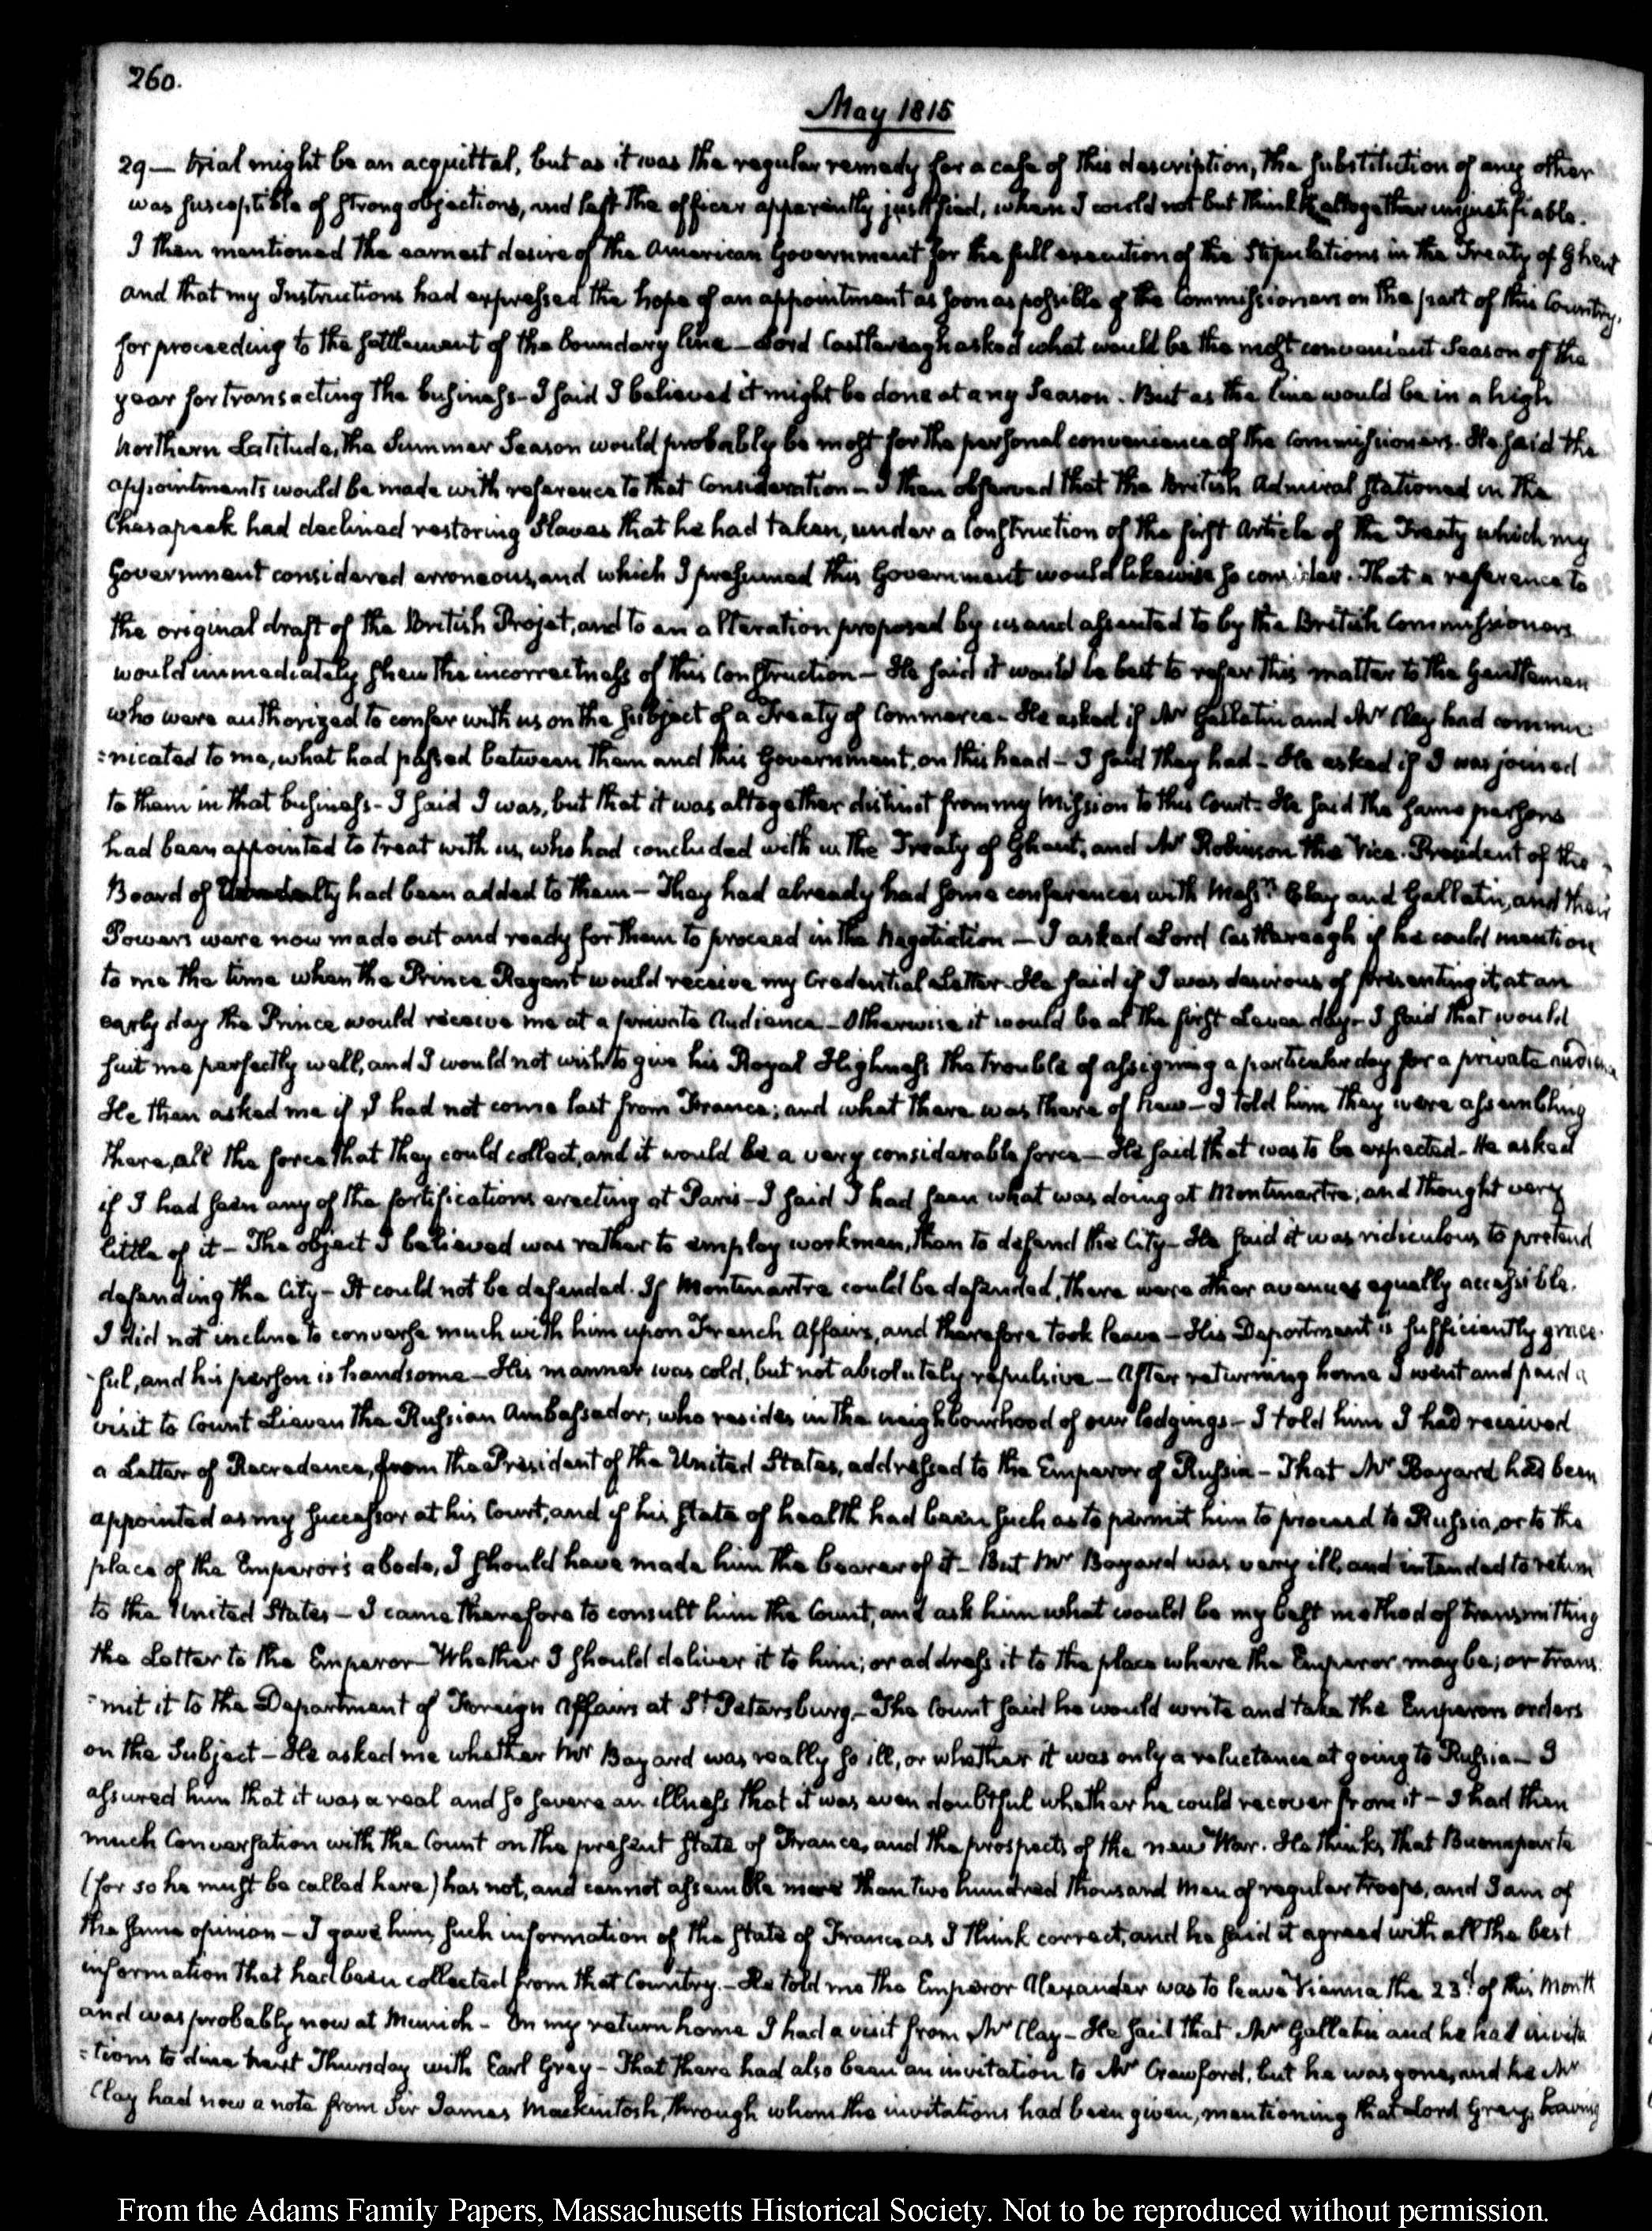 260.
May 1815
29— trial might be an acquittal, but as it was the regular remedy for a case of this description, the substitution of any other
was susceptible of strong objections, and left the officer apparently justified, when I could not but think it altogether unjustifiable.
I then mentioned the earnest desire of the American Government for the full execution of the Stipulations in the Treaty of Ghent
and that my Instructions had expressed the hope of an appointment as soon as possible of the Commissioners on the part of this Country,
for proceeding to the settlement of the boundary line – Lord Castlereagh asked what would be the most convenient Season of the
year for transacting the business – I said I believed it might be done at any Season. But as the line would be in a high
Northern Latitude, the Summer Season would probably be most for the personal convenience of the Commissioners. He said the
appointments would be made with reference to that Consideration – I then observed that the British Admiral stationed in the
Chesapeak had declined restoring Slaves that he had taken, under a Construction of the first Article of the Treaty which my
Government considered erroneous, and which I presumed this Government would likewise so consider. That a reference to
the original draft of the British Projet, and to an alteration proposed by us and assented to by the British Commissioners
would immediately shew the incorrectness of this Construction – He said it would be best to refer this matter to the Gentlemen
who were authorized to confer with us on the subject of a Treaty of Commerce – He asked if Mr Gallatin and Mr Clay had commu-
=nicated to me, what had passed between them and this Government, on this head – I said they had – He asked if I was joined
to them in that business – I said I was, but that it was altogether distinct from my Mission to this Court – He said the same persons
had been appointed to treat with us, who had concluded with us the Treaty of Ghent, and Mr Robinson the Vice-President of the
Board of had been added to them – They had already had some conferences with Messrs Clay and Gallatin, and their
Powers were now made out and ready for them to proceed in the Negotiation – I asked Lord Castlereagh if he could mention
to me the time when the Prince Regent would receive my Credential Letter – He said if I was desirous of presenting it, at an
early day the Prince would receive me at a private Audience – Otherwise it would be at the first Levee day – I said that would
suit me perfectly well, and I would not wish to give his Royal Highness the trouble of assigning a particular day for a private audience
He then asked me if I had not come last from France; and what there was there of new – I told him they were assembling
there, all the force that they could collect, and it would be a very considerable force – He said that was to be expected – He asked
if I had seen any of the fortifications erecting at Paris – I said I had seen what was doing at Montmartre; and thought very
little of it – The object I believed was rather to employ workmen, than to defend the City – He said it was ridiculous to pretend
defending the City – It could not be defended. If Montmartre could be defended, there were other avenues equally accessible.
I did not incline to converse much with him upon French Affairs, and therefore took leave – His Deportment is sufficiently grace-
-ful, and his person is handsome – His manner was cold, but not absolutely repulsive – After returning home I went and paid a
visit to Count Lieven the Russian Ambassador, who resides in the neighbourhood of our lodgings – I told him I had received
a Letter of Recredence, from the President of the United States, addressed to the Emperor of Russia – That Mr Bayard had been
appointed as my successor at his Court, and if his state of health had been such as to permit him to proceed to Russia, or to the
place of the Emperor's abode, I should have made him the bearer of it – But Mr Bayard was very ill, and intended to return
to the United States – I came therefore to consult him the Count, and ask him what would be my best method of transmitting
the Letter to the Emperor – Whether I should deliver it to him; or address it to the place where the Emperor may be; or trans-
=mit it to the Department of Foreign Affairs at St Petersburg – The Count said he would write and take the Emperors orders
on the Subject – He asked me whether Mr Bayard was really so ill, or whether it was only a reluctance at going to Russia – I
assured him that it was a real and so severe an illness that it was even doubtful whether he could recover from it – I had then
much Conversation with the Count on the present state of France, and the prospects of the new War. He thinks that Buonaparte
(for so he must be called here) has not, and cannot assemble more than two hundred thousand men of regular troops, and I am of
the same opinion – I gave him such information of the state of France as I think correct, and he said it agreed with all the best
information that had been collected from that Country. – He told me the Emperor Alexander was to leave Vienna the 23d of this Month
and was probably now at Munich – On my return home I had a visit from Mr Clay – He said that Mr Gallatin and he had invita
=tions to dine next Thursday with Earl Grey – That there had also been an invitation to Mr Crawford, but he was gone, and he Mr
Clay had now a note from Sir James Mackintosh, through whom the invitations had been given, mentioning that Lord Grey, having
From the Adams Family Papers, Massachusetts Historical Society. Not to be reproduced without permission.